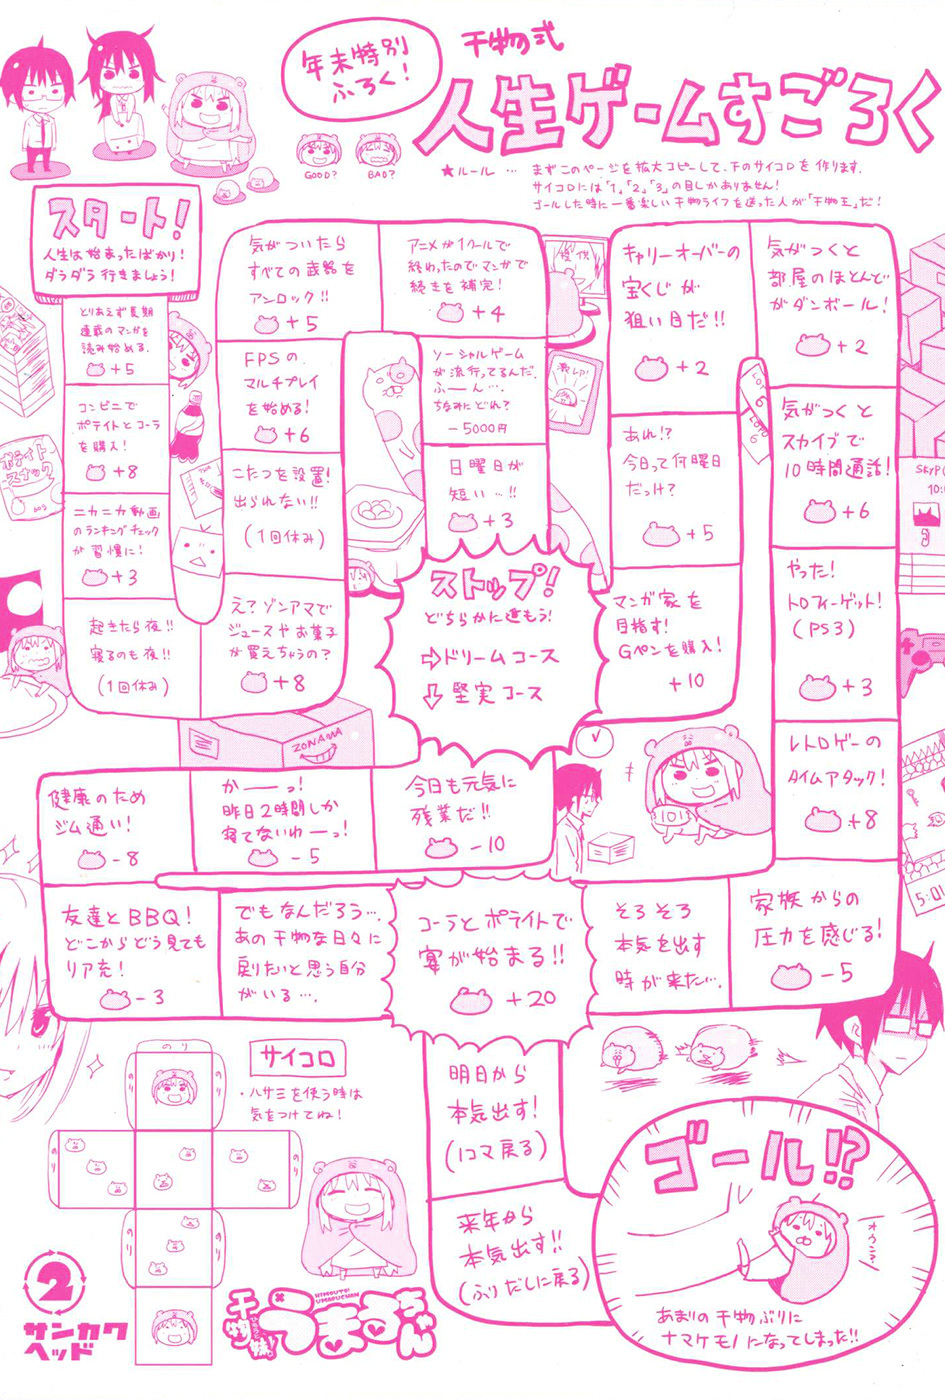 年末特別
ふろく！
干物式
人生ゲームすごろく
GOOD?
BAD?
★ルール … まずこのページを拡大コピーして、下のサイコロを作ります。
サイコロには「1」「2」「3」の目しかありません！
ゴールした時に一番楽しい干物ライフを送った人が「干物王」だ！
スタート！
人生は始まったばかり！
ダラダラ行きましょう！
とりあえず長期
連載のマンガを
読み始める。
+5
コンビニで
ポテイトとコーラ
を購入！
+8
ニカニカ動画
のランキングチェック
が習慣に！
+3
起きたら夜!!
寝るのも夜!!
(1回休み)
え？ゾンアマで
ジュースやお菓子
が買えちゃうの？
+8
こたつを設置！
出られない!!
(1回休み)
FPSの
マルチプレイ
を始める！
+6
気がついたら
すべての武器を
アンロック!!
+5
アニメが1クールで
終わったのでマンガで
続きを補完！
+4
ソーシャルゲーム
が流行ってるんだ。
ふーん…。
ちなみにどれ？
-5000円
日曜日が
短い…!!
+3
ストップ！
どちらかに進もう！
⇨ドリームコース
⇩堅実コース
マンガ家を
目指す！
Gペンを購入！
+10
あれ!?
今日って何曜日
だっけ？
+5
キャリーオーバーの
宝くじが
狙い目だ!!
+2
気がつくと
部屋のほとんど
がダンボール！
+2
気がつくと
スカイプで
10時間通話！
+6
やった！
トロフィーゲット！
(PS3)
+3
レトロゲーの
タイムアタック！
+8
家族からの
圧力を感じる！
-5
そろそろ
本気を出す
時が来た…。
今日も元気に
残業だ!!
-10
かーーっ！
昨日2時間しか
寝てないわーっ！
-5
健康のため
ジム通い！
-8
友達とBBQ！
どこからどう見ても
リア充！
-3
でもなんだろう…。
あの干物な日々に
戻りたいと思う自分
がいる…。
コーラとポテイトで
宴が始まる!!
+20
明日から
本気出す！
(1コマ戻る)
来年から
本気出す!!
(ふりだしに戻る)
ゴール!?
あまりの干物ぶりに
ナマケモノになってしまった!!
サイコロ
・ハサミを使う時は
気をつけてね！
のり
のり
のり
のり
のり
のり
のり
ポテイト
スナック
60g
ZONAMA
LOTO
6
LOTO
6
5:01
2
サンカク
ヘッド
HIMOUTO!
UMARUCHAN
干物妹！うまるちゃん